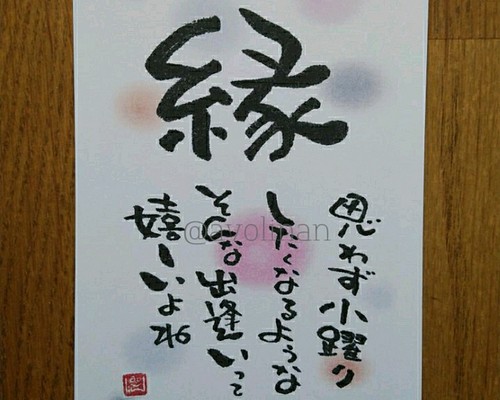 縁
思わず小躍り
したくなるような
そんな出逢いって
嬉しいよね